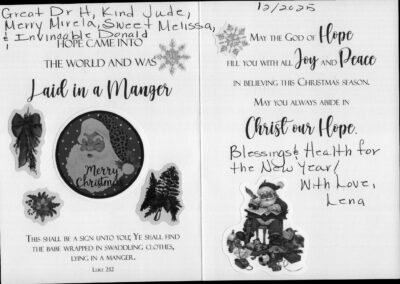 Great Dr H, Kind Jude,
Merry Mirela, Sweet Melissa,
& Invinguble Donald
HOPE CAME INTO
THE WORLD AND WAS
Laid in a Manger
Merry
Christmas
THIS SHALL BE A SIGN UNTO YOU; YE SHALL FIND
THE BABE WRAPPED IN SWADDLING CLOTHES,
LYING IN A MANGER.
LUKE 2:12
12/2025
MAY THE GOD OF Hope
FILL YOU WITH ALL Joy AND Peace
IN BELIEVING THIS CHRISTMAS SEASON.
MAY YOU ALWAYS ABIDE IN
Christ our Hope.
Blessings & Health for
the New Year!
With Love,
Lena